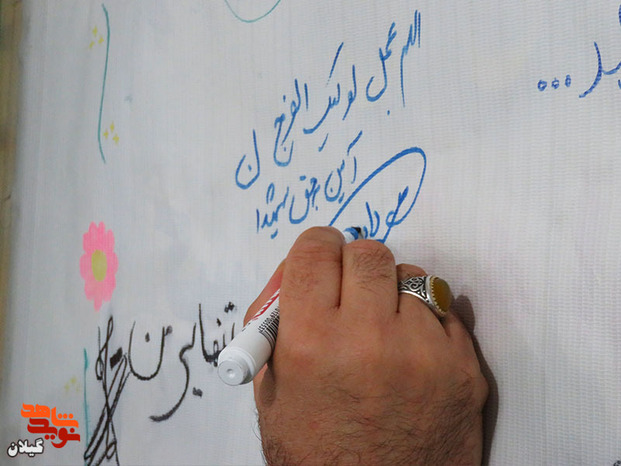 اللهم عجل لولیک الفرج
آمین بحق شهدا
تنهایی من
نوید شاهد
گیلان